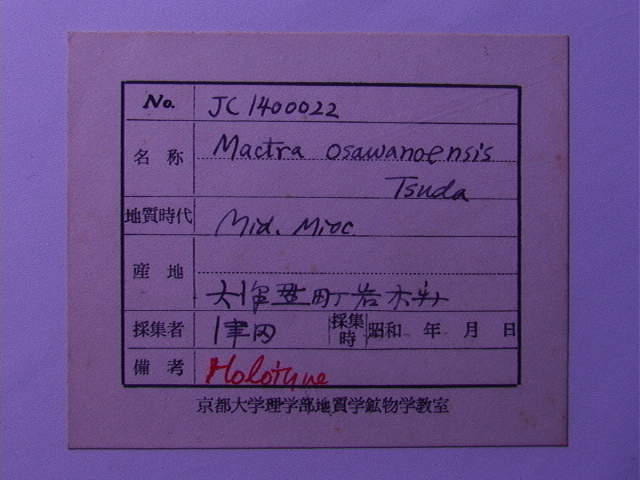 No. JC 1400022
名称 Mactra osawanoensis
Tsuda
地質時代 Mid. Mioc
産地
大沢野町岩木
採集者 津田 採集時 昭和 年 月 日
備考 Holotype
京都大学理学部地質学鉱物学教室